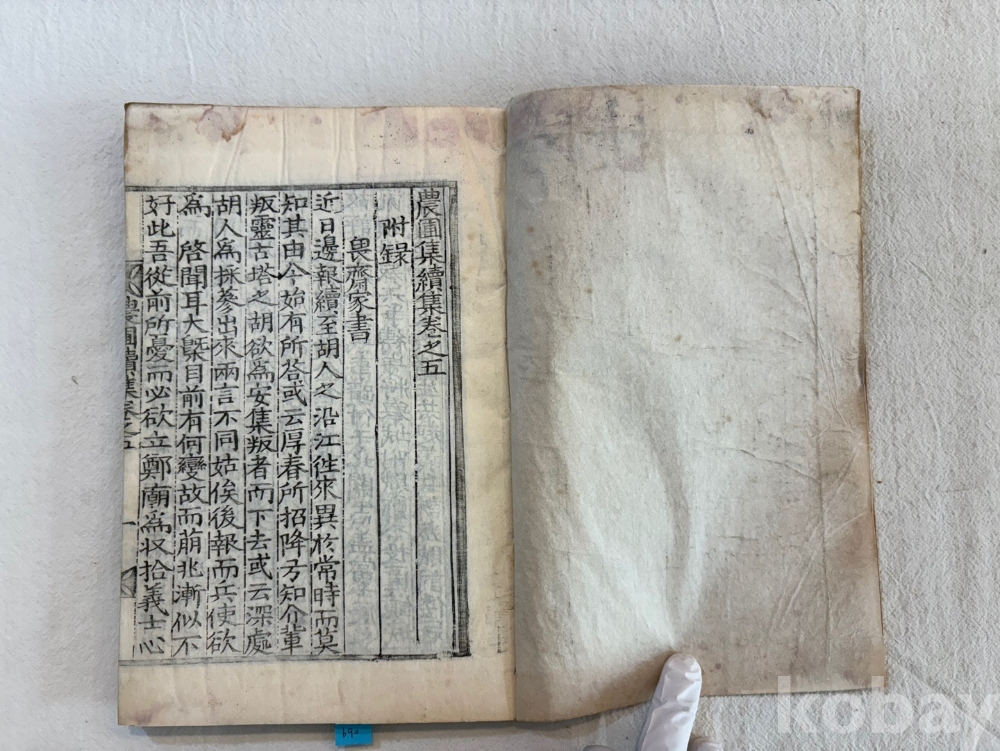 農圃集續集卷之五
附錄
畏齋家書
近日邊報續至胡人之沿江徃來異於常時而莫
知其由今始有所答或云厚春所招降方知介輩
叛靈古塔之胡欲爲安集叛者而下去或云深處
胡人爲採蔘出來兩言不同姑俟後報而兵使欲
爲 啓聞耳大槩目前有何變故而萌兆漸似不
好此吾從前所憂而必欲立鄭廟爲収拾義士心
農圃續集卷之五
一
690
kobay